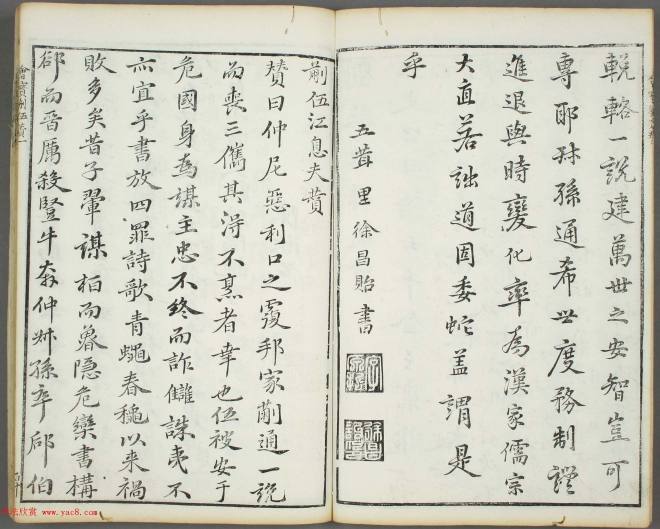 輓輅一説建萬世之安智豈可
專耶叔孫通希世度務制禮
進退與時變化卒為漢家儒宗
大直若詘道固委蛇盖謂是
乎
五茸里徐昌貽書
蒯伍江息夫贊
贊曰仲尼惡利口之覆邦家蒯通一説
而喪三儁其得不烹者幸也伍被安于
危國身為謀主忠不終而詐讎誅夷不
亦宜乎書放四罪詩歌青蠅春秋以來禍
敗多矣昔子翬謀桓而魯隱危欒書構
郤而晉厲殺豎牛奔仲叔孫卒郈伯
www.yac8.com